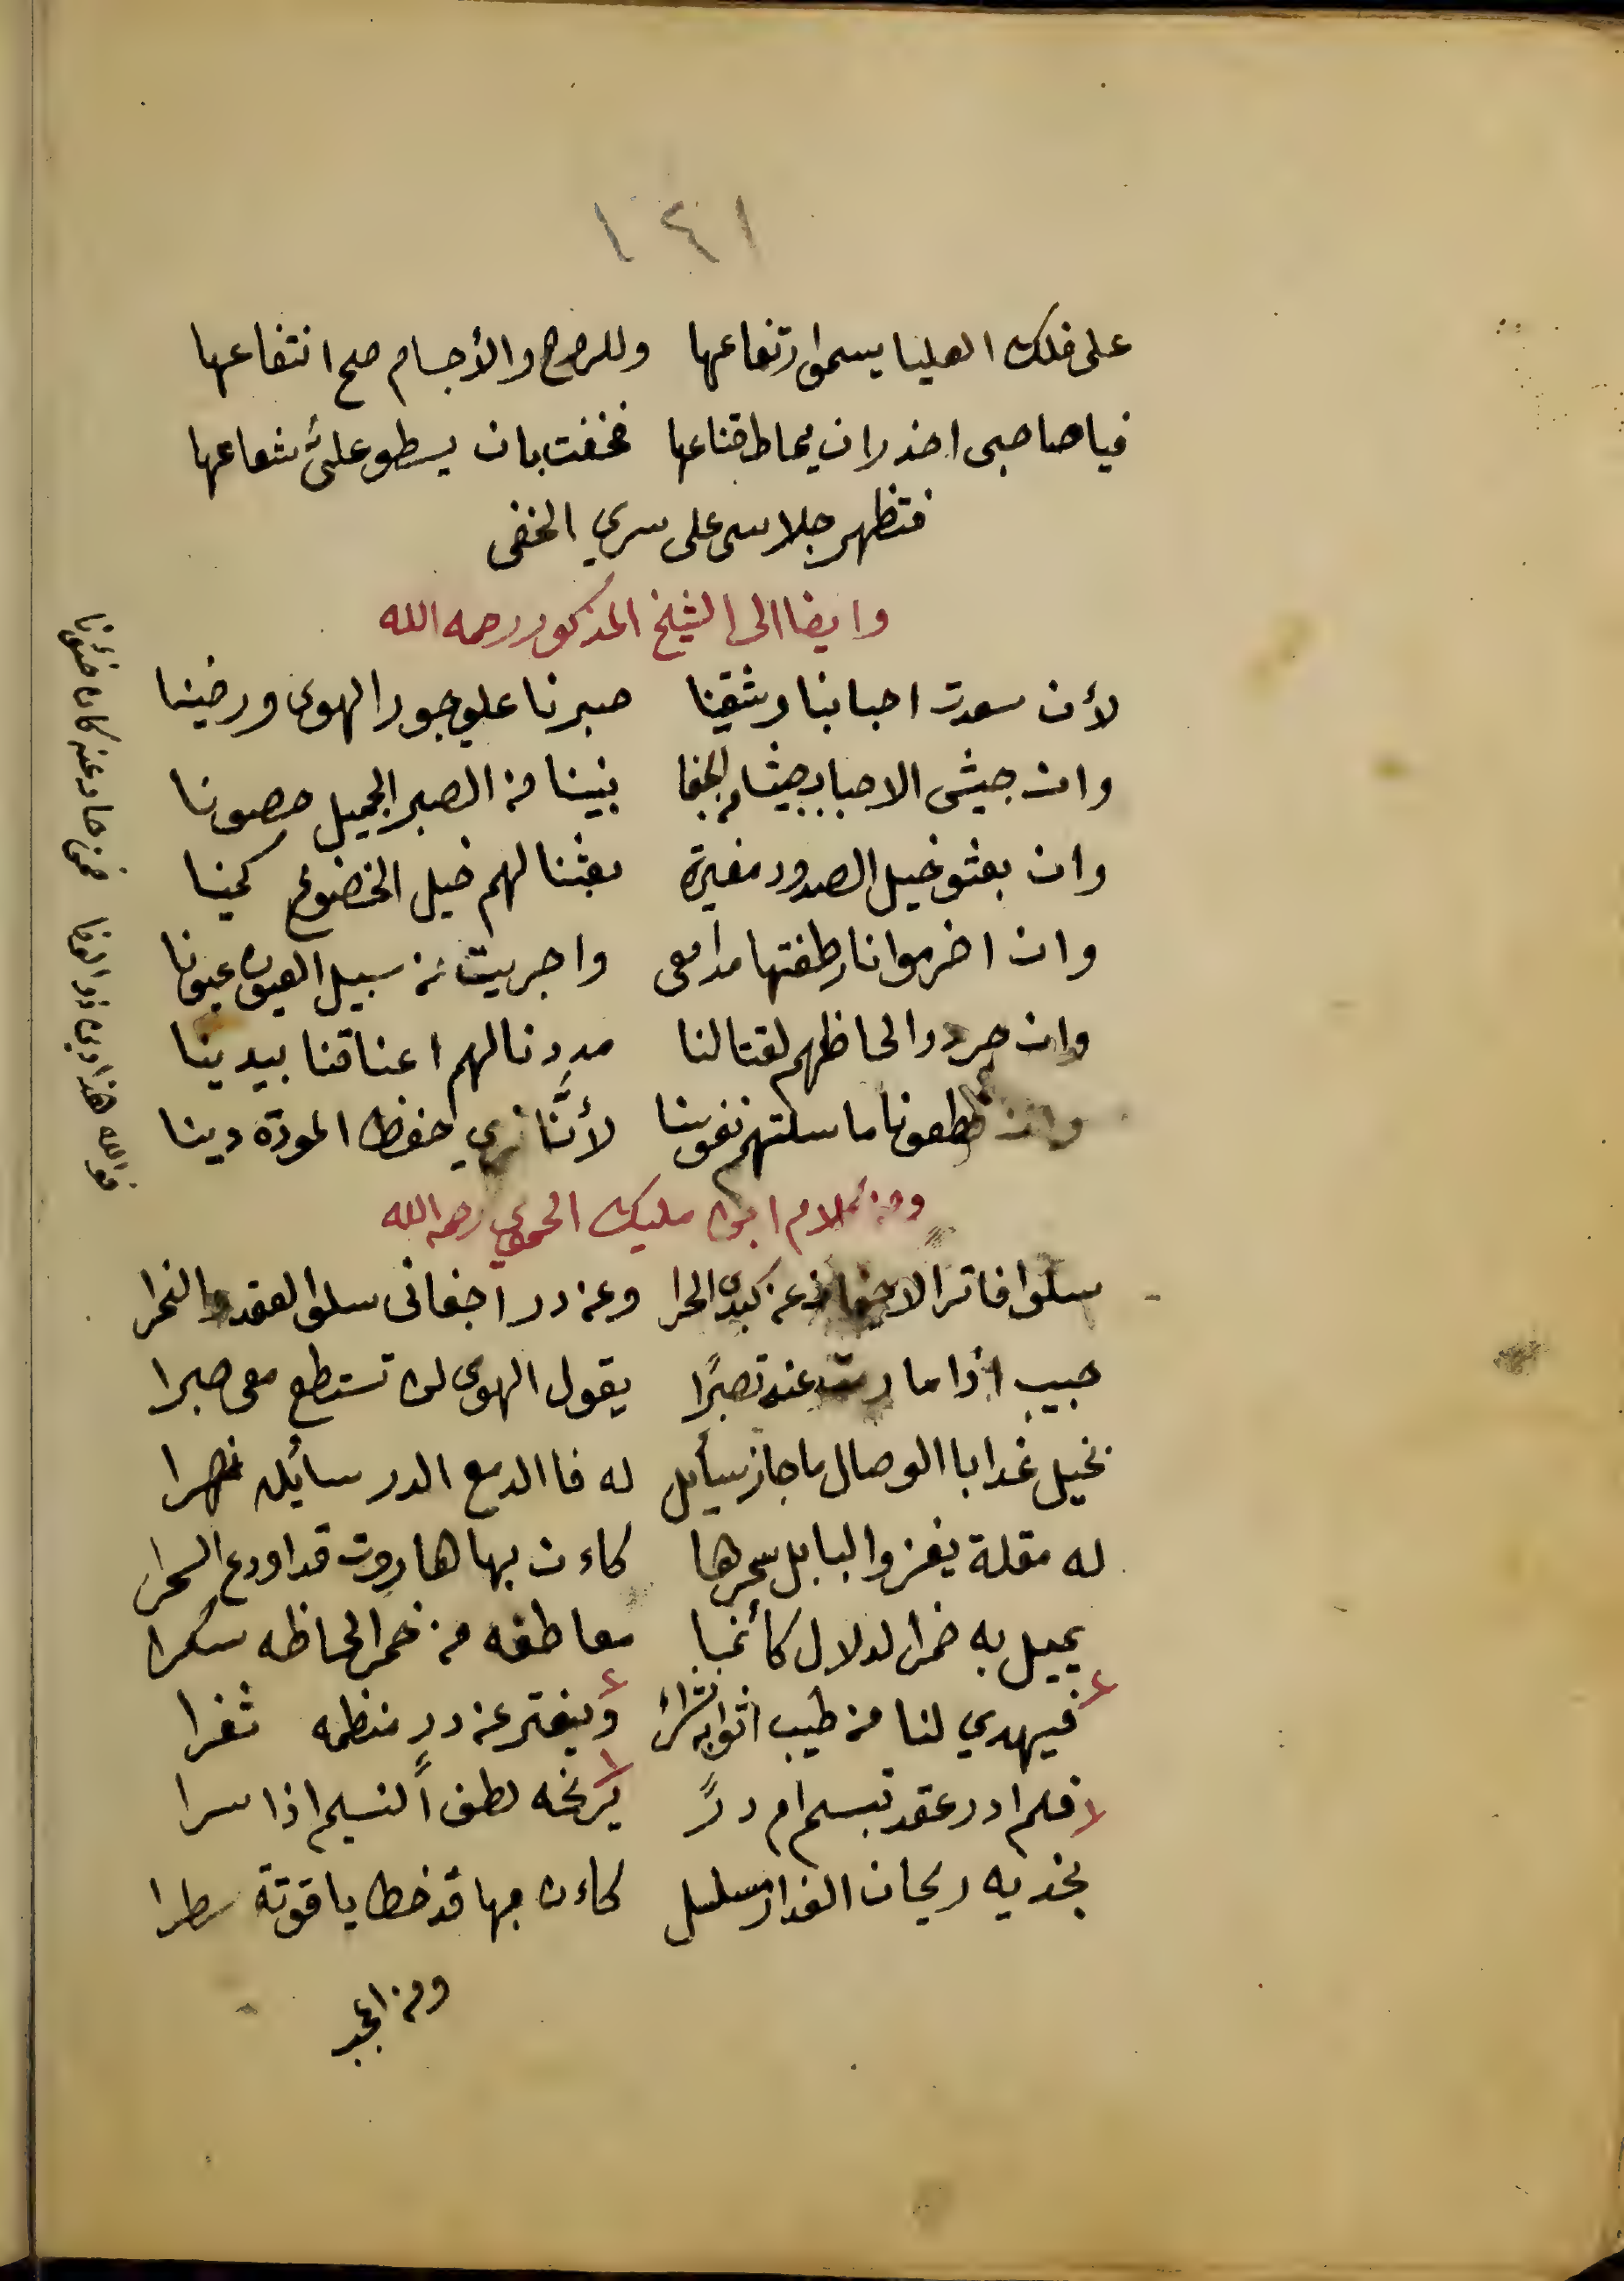 ١٤١
على فلك العليا يسموا رتفاعها وللروح والأجسام صح انتفاعها
فيا صاحبى احذر ان يماط قناعها فخفت بان يسطو علىَّ شعاعها
فتظهر جلاسى على سري الخفى
وايضا الى الشيخ المذكور رحمه الله
لأن سعدت احبابنا وشقينا صبرنا على جور الهوى ورضينا
وان جيشى الاحباب جيشا من الجفا بنينا من الصبر الجميل حصونا
وان بعثو خيل الصدود مغيرة بعثنا لهم خيل الخضوع كمينا
وان اضرموا نار طفتها مدامعى واجريت من سبيل العيون عيونا
وان جردو الحاظهم لقتالنا مددنا لهم اعناقنا بيدينا
وان قطعونا ما سلتهم نفوسنا لأنَّا نري حفظ المودة دينا
فوالله هذا دين ذو الوفا فمن حاد عنه كان خئونا
ومن كلام ابن مليك الحموي رحمه الله
سلوا فاتر الاجفان عن كبدى الحرا وعن در اجفانى سلوا العقد والنحرا
حبيب اذا ما رمت عنه تصبرًا يقول الهوى لن تستطع معى صبرا
بخيل غدا با الوصال ما جاز سيأيل له فا الدمع الدر سائله نهرا
له مقلة يغزوا لبابل سحرها كاءن بها هاروت قد اودع السحرا
يميل به خمر الدلال كأنما معاطفه من خمر الحاظه سكرا
فيهدي لنا من طيب اثوابه نشرا ويفتر عن درٍ منظمه ثغرا
فلم ادر عقد تبسم ام درً يرنحه لطف النسيم اذا سرا
بخديه ريحان الغدار مسلسل كاءن بها قد خط ياقوتة سطرا
ومن اعجب